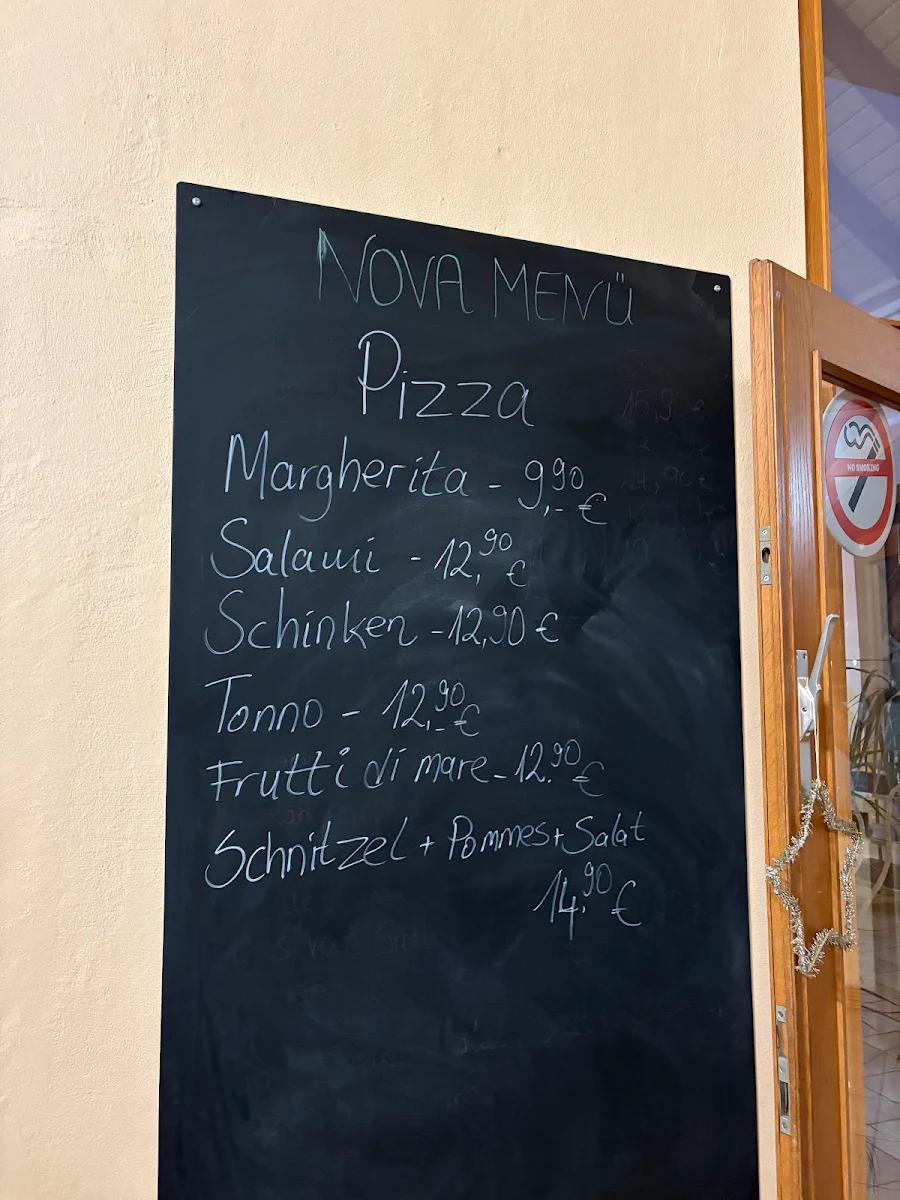 NOVA MENÜ
Pizza
Margherita - 9,90 €
Salami - 12,90 €
Schinken - 12,90 €
Tonno - 12,90 €
Frutti di mare - 12.90 €
Schnitzel + Pommes + Salat
14.90 €
NO SMOKING